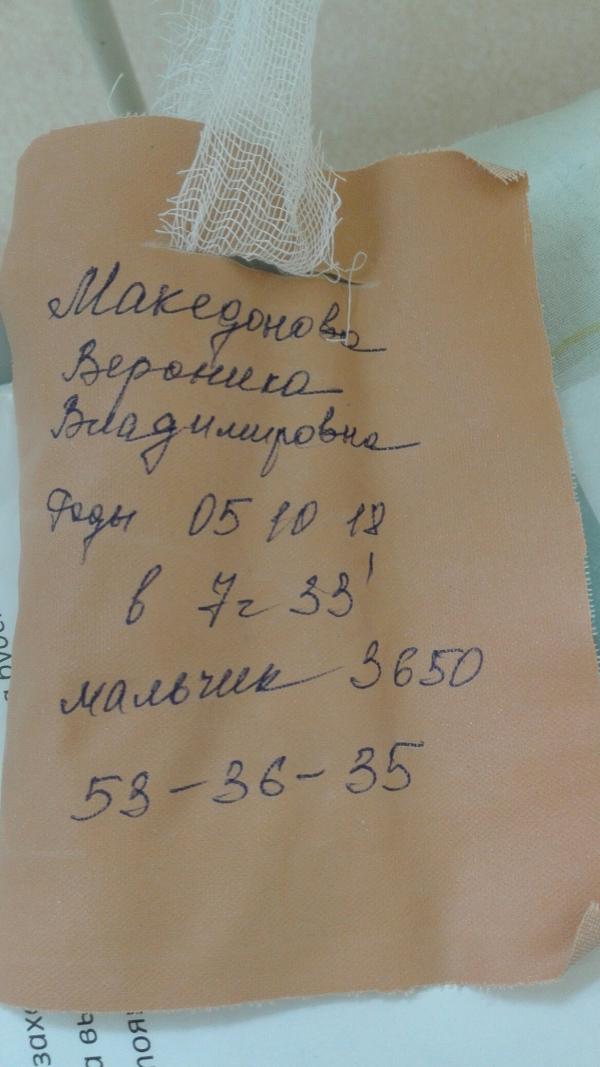 Македонова
Вероника
Владимировна
Роды 05 10 18
в 7ч 33'
мальчик 3650
53-36-35
захо
а вы
тоя